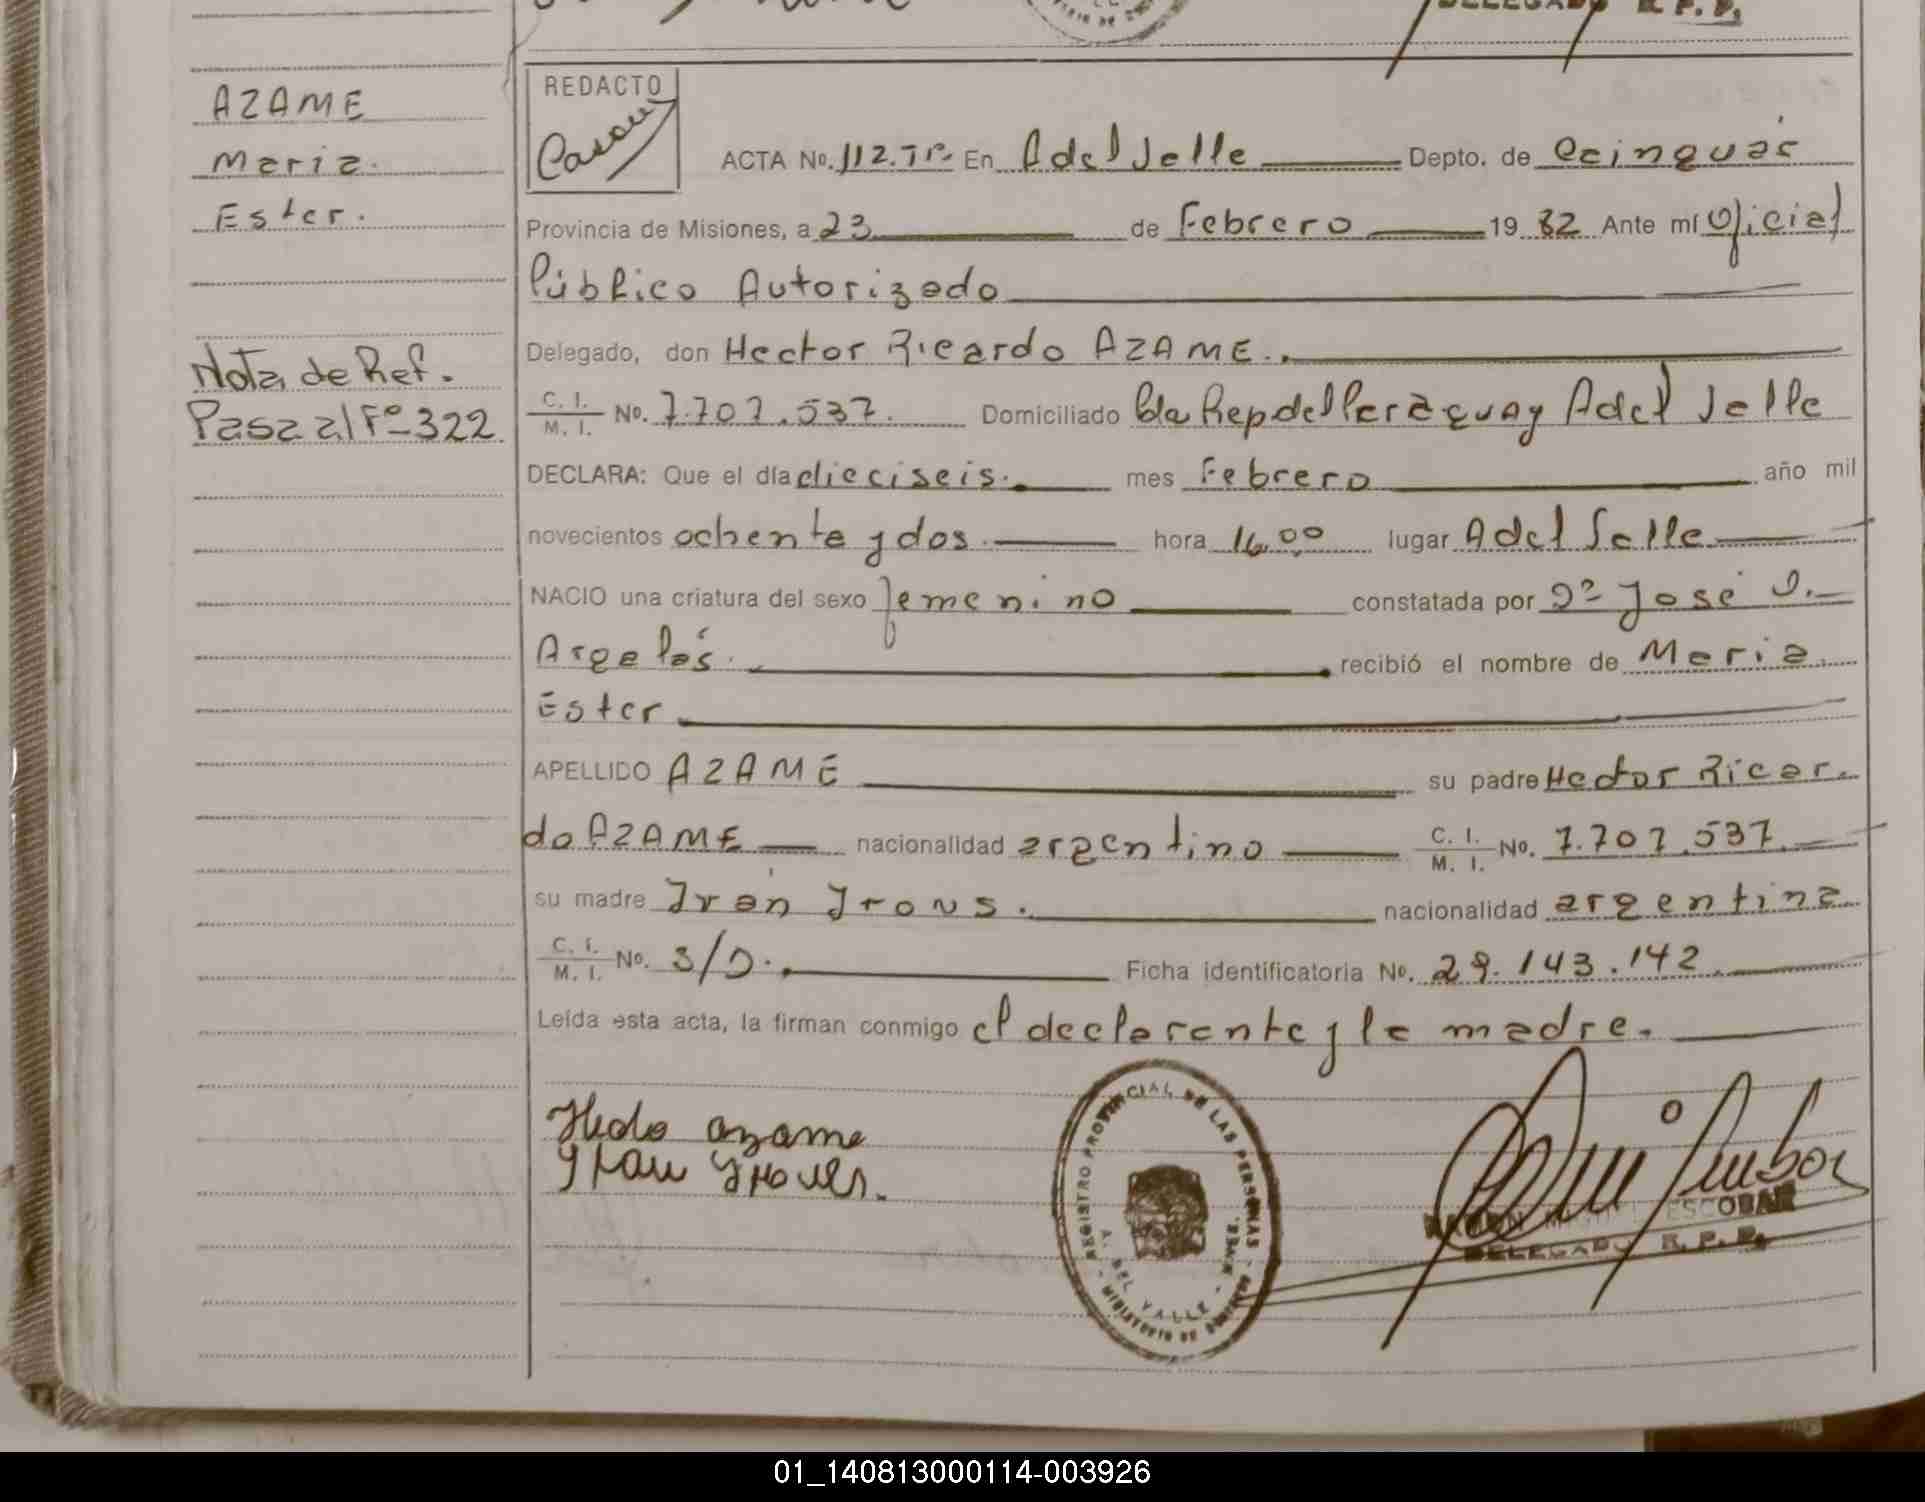 DELEGADO R. P. P.
AZAME
Maria.
Ester.
Nota de Ref.
Pasa al Fº 322
REDACTO
ACTA No. 112.Tº. En A del Valle Depto. de Cainguás
Provincia de Misiones, a 23 de Febrero 19 82 Ante mí Oficial
Público Autorizado
Delegado, don Hector Ricardo AZAME.
C. I. / M. I. No. 7.707.537. Domiciliado Rep del Paraguay A del Valle
DECLARA: Que el día dieciseis. mes Febrero año mil
novecientos ochenta y dos. hora 16,00 lugar A del Valle
NACIO una criatura del sexo femenino constatada por José
recibió el nombre de Maria
Ester
APELLIDO AZAME su padre Hector Ricar-
do AZAME nacionalidad argentino C. I. / M. I. No. 7.707.537.
su madre Irán nacionalidad argentina
C. I. / M. I. No. S/D. Ficha identificatoria No. 29.143.142
Leída esta acta, la firman conmigo el declarante y la madre.
azame
REGISTRO PROVINCIAL DE LAS PERSONAS
A. DEL VALLE
MINISTERIO DE GOBIERNO
RAMON MIGUEL ESCOBAR
DELEGADO R. P. P.
01_140813000114-003926